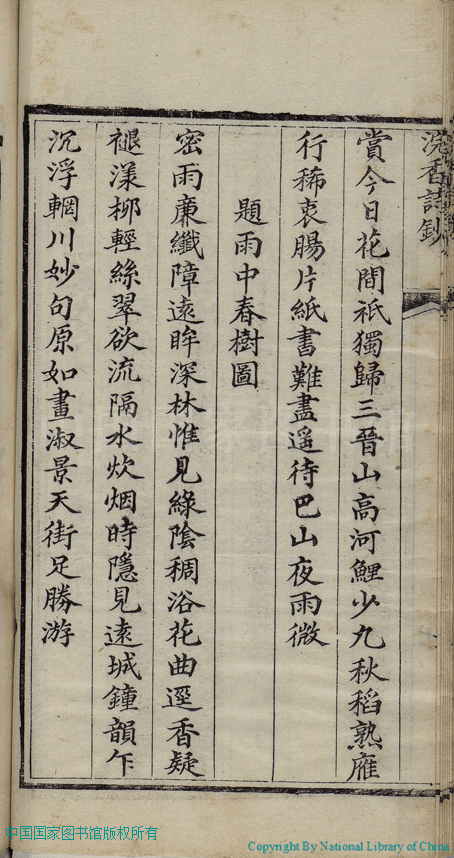 浣香詩鈔
賞今日花間祇獨歸三晉山高河鯉少九秋稻熟雁
行稀衷腸片紙書難盡遥待巴山夜雨微
題雨中春樹圖
密雨廉纖障遠眸深林惟見綠陰稠浴花曲逕香疑
褪漾柳輕絲翠欲流隔水炊烟時隱見遠城鐘韻乍
沉浮輞川妙句原如畫淑景天街足勝游
中国国家图书馆版权所有
Copyright By National Library of China